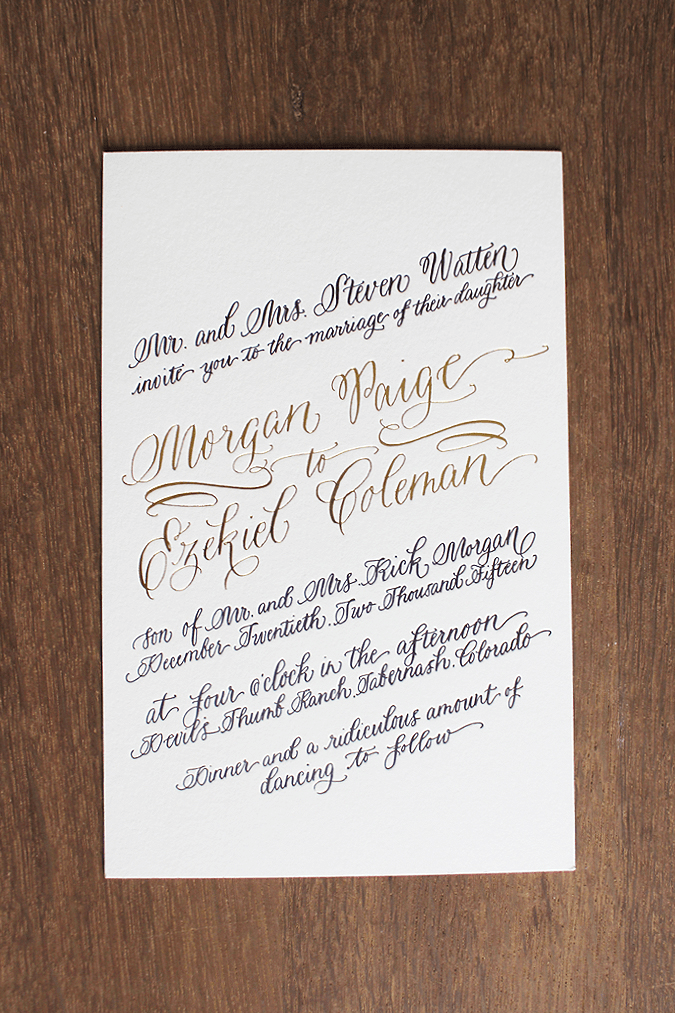 Mr. and Mrs. Steven Watten
invite you to the marriage of their daughter
Morgan Paige
to
Ezekiel Coleman
son of Mr. and Mrs. Rick Morgan
December Twentieth. Two Thousand Fifteen
at four o'clock in the afternoon
Devil's Thumb Ranch. Tabernash. Colorado
Dinner and a ridiculous amount of
dancing to follow